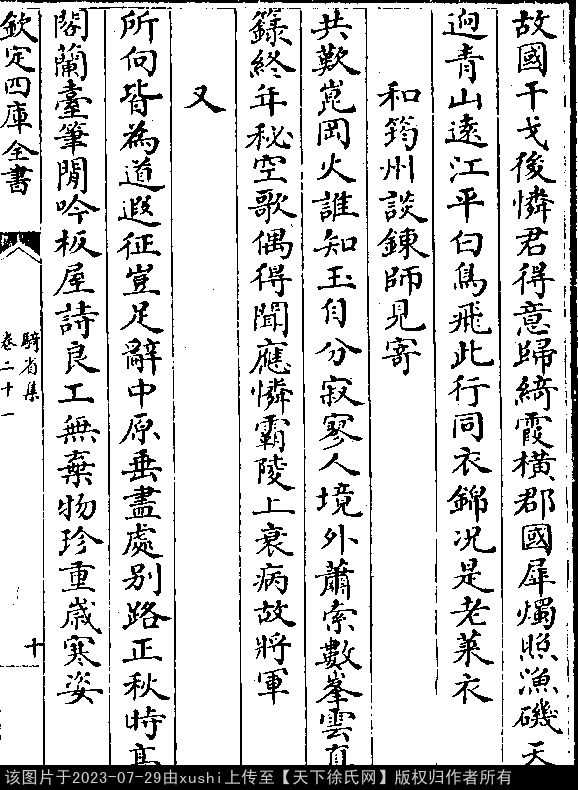 故國干戈後憐君得意歸綺霞橫郡國犀燭照漁磯天
逈青山逺江平白鳥飛此行同衣錦况是老萊衣
和筠州談鍊師見寄
共歎崑岡火誰知玉自分寂寥人境外蕭索數峯雲真
籙終年秘空歌偶得聞應憐霸陵上衰病故將軍
又
所向皆為道遐征豈足辭中原垂盡處别路正秋時髙
閣蘭臺筆閒吟板屋詩良工無棄物珍重嵗寒姿
欽定四庫全書
騎省集
卷二十一
十
该图片于2023-07-29由xushi上传至【天下徐氏网】版权归作者所有